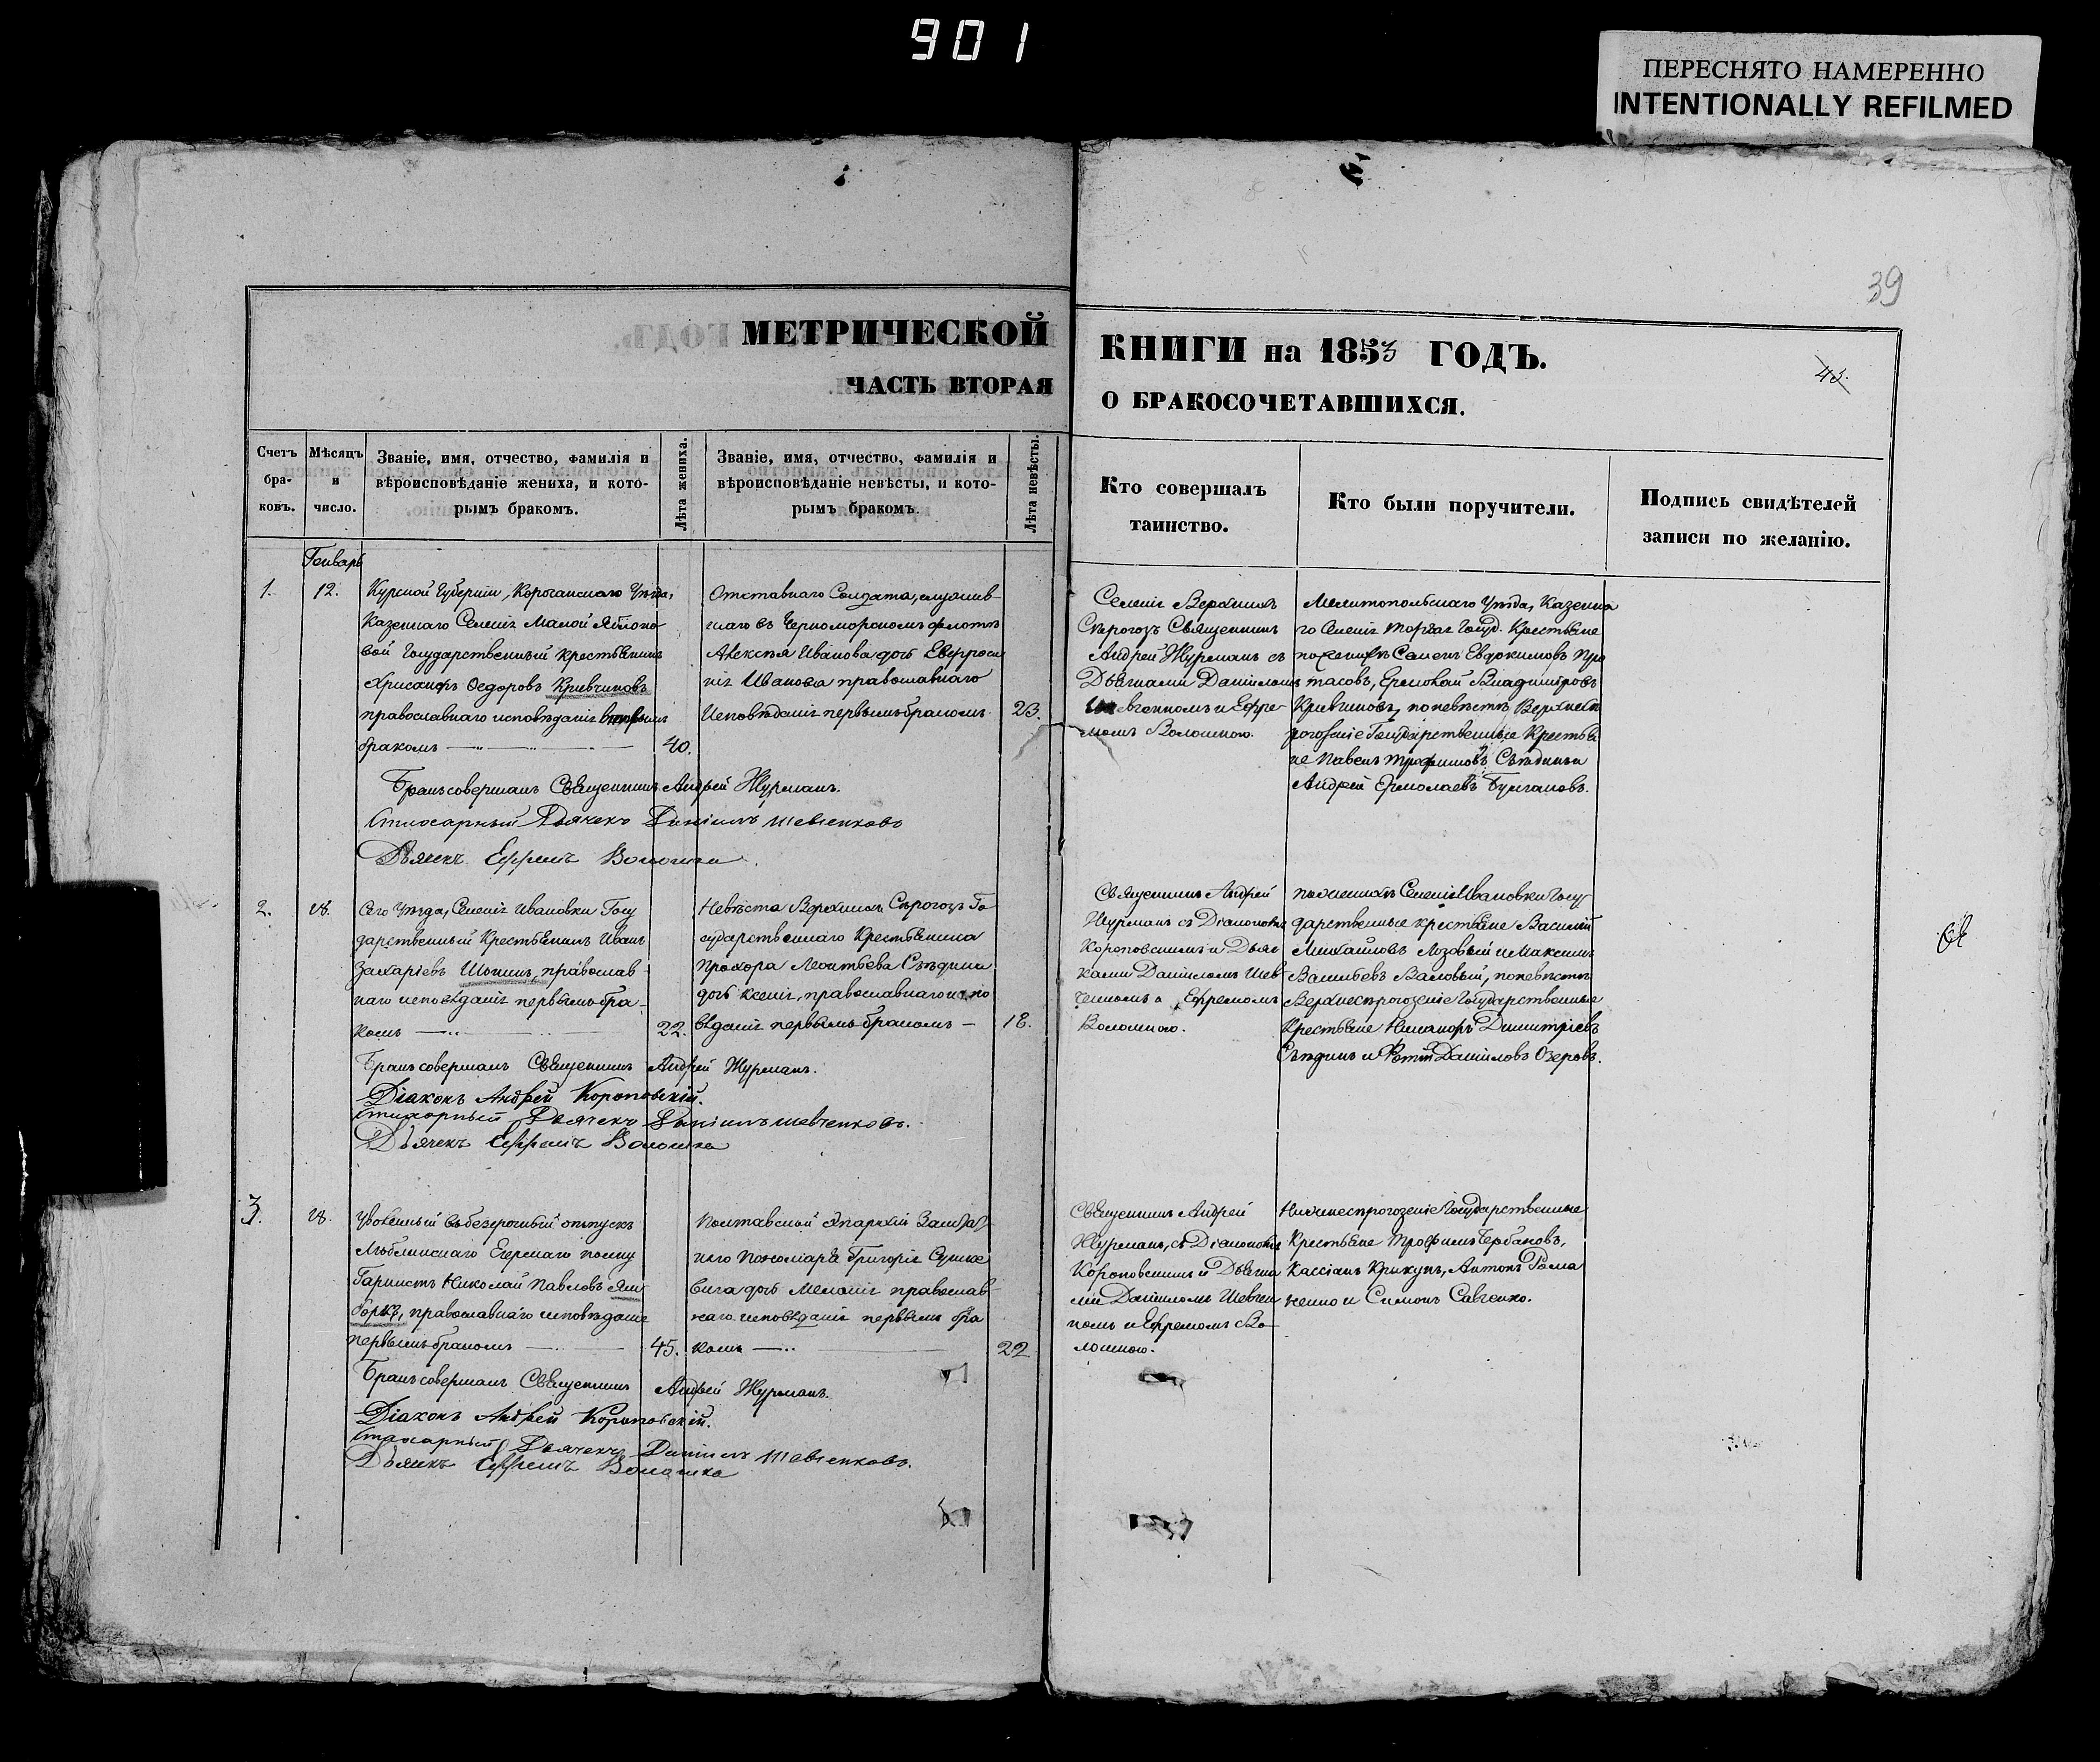 901
ПЕРЕСНЯТО НАМЕРЕННО
INTENTIONALLY REFILMED
39
МЕТРИЧЕСКОЙ
ЧАСТЬ ВТОРАЯ
КНИГИ на 1853 ГОДЪ.
О БРАКОСОЧЕТАВШИХСЯ.
45.
Счетъ
бра-
ковъ.
Мѣсяцъ
и
число.
Званіе, имя, отчество, фамилія и
вѣроисповѣданіе жениха, и кото-
рымъ бракомъ.
Лѣта жениха.
Званіе, имя, отчество, фамилія и
вѣроисповѣданіе невѣсты, и кото-
рымъ бракомъ.
Лѣта невѣсты.
Кто совершалъ
таинство.
Кто были поручители.
Подпись свидѣтелей
записи по желанію.
Генварь
1.
12.
Курской Губерніи, Корочанскаго Уѣзда,
Казеннаго Селенія Малой Яблоно
вой Государственный крестьянинъ
Хрисанфъ Ѳедоровъ Кривчиковъ
православнаго исповѣданія
бракомъ
40.
Отставнаго Солдата, служив-
шаго въ Черноморскомъ флотѣ
Алексѣя Иванова дочь Евфроси
нія Иванова православнаго
Исповѣданія первымъ бракомъ
23.
Селенія Верхнихъ
Сѣрогозъ Священникъ
Андрей Журманъ съ
Дьячками Даніиломъ
Шевченкомъ и Ефре-
момъ Волошкою.
Мелитопольскаго Уѣзда, Казенна
го Селенія Торгая Госуд. Крестьяне
по женихѣ Семенъ Евдокимовъ Про
тасовъ, Ермолай Владиміровъ
Кривчиковъ, по невѣстѣ Верхнесѣ
рогозскіе Государственные Крестья
не Павелъ Трофимовъ Сѣединъ и
Андрей Ермолаевъ Булгаковъ.
Бракъ совершалъ Священникъ Андрей Журманъ.
Стихарный Дьячекъ Даніилъ Шевченковъ
Дьячекъ Ефремъ Волошка
2.
18.
Сего Уѣзда, Селенія Ивановки Госу
дарственный Крестьянинъ Иванъ
Захаріевъ православ-
наго исповѣданія первымъ бра-
комъ
22.
Невѣста Верхнихъ Сѣрогозъ Го
сударственнаго Крестьянина
Прохора Леонтьева Сѣедина
дочь Ксенія, православнаго испо
вѣданія первымъ бракомъ —
18.
Священникъ Андрей
Журманъ съ Діакономъ
Короповскимъ и Дьяч
ками Даніиломъ Шев
ченкомъ и Ефремомъ
Волошкою.
по женихѣ Селенія Ивановки Госу
дарственные крестьяне Василій
Михайловъ Лозовый и Максимъ
Васильевъ Валовый, по невѣстѣ
Верхнесѣрогозскіе Государственные
Крестьяне Никаноръ Димитріевъ
Сѣединъ и Фотій Даніиловъ Озеровъ.
Бракъ совершалъ Священникъ Андрей Журманъ.
Діаконъ Андрей Короповскій.
Стихарный Дьячекъ Даніилъ Шевченковъ.
Дьячекъ Ефремъ Волошка
3.
18.
Уволенный въ безсрочный отпускъ
Люблинскаго Егерскаго полку
Николай Павловъ
православнаго исповѣданія
первымъ бракомъ
45.
Полтавской Епархіи
Пономаря Григорія
дочь Меланія православ-
наго исповѣданія первымъ бра
комъ —
22
Священникъ Андрей
Журманъ, съ Діакономъ
Короповскимъ и Дьячка
ми Даніиломъ Шевчен
комъ и Ефремомъ Во-
лошкою.
Нижнесѣрогозскіе Государственные
Крестьяне Трофимъ Чербановъ,
Кассіанъ Крикунъ, Антонъ Рома
ненко и Симонъ Савченко.
Бракъ совершалъ Священникъ Андрей Журманъ.
Діаконъ Андрей Короповскій.
Стихарный Дьячекъ Даніилъ Шевченковъ.
Дьячекъ Ефремъ Волошка